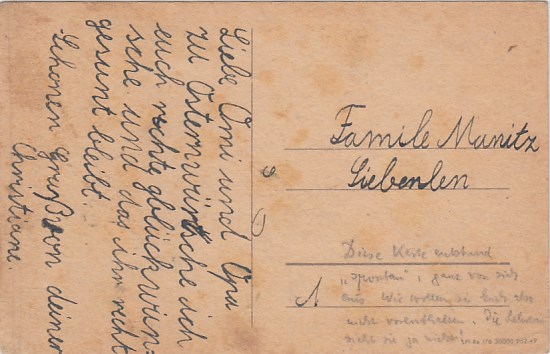 Liebe Omi und Opa
zu Osternwünsche ich
euch rechte glückwün-
sche und das ihr recht
gesunt bleibt.
Schönen Gruß von deiner
Christiane.
Familie Manitz
Siebenlen
Diese Karte entstand
„spontan", ganz von sich
aus. Wir wollen sie Euch also
nicht vorenthalten. Die
nicht sie ja nicht!